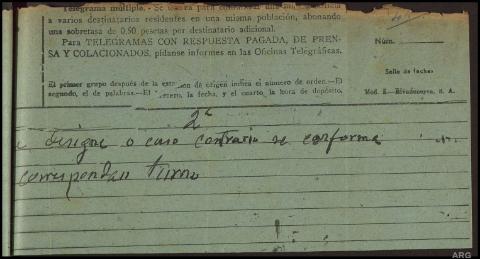 Telegrama múltiple. - Se usará para
a varios destinatarios residentes en una misma población, abonando
una sobretasa de 0,50 pesetas por destinatario adicional.
Para TELEGRAMAS CON RESPUESTA PAGADA, DE PREN-
SA Y COLACIONADOS, pídanse informes en las Oficinas Telegráficas.
Núm.
Sello de fechas
El primer grupo después de la estación de origen indica el número de orden.—El
segundo, el de palabras.—El tercero, la fecha, y el cuarto, la hora de depósito.
Mod. E.—Rivadeneyra, S. A.
2ª
designe o caso contrario se conforme
correspondan turno
ARG